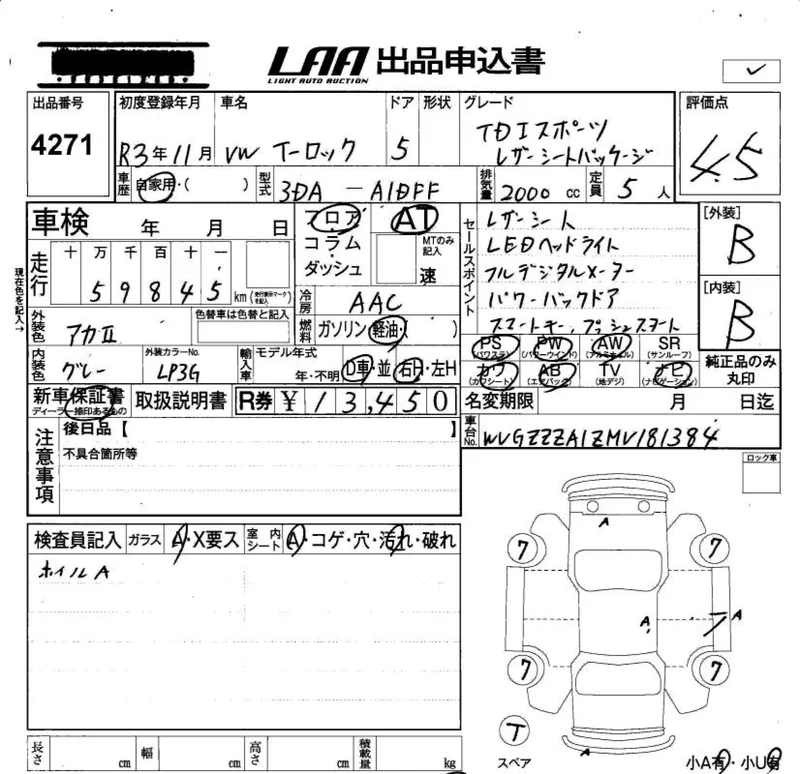 LAA 出品申込書
LIGHT AUTO AUCTION
出品番号
4271
初度登録年月 車名 ドア 形状 グレード
R3年11月 VW T-ロック 5 TDIスポーツ
レザーシートパッケージ
評価点
4.5
車歴 自家用・( ) 型式 3DA-A1DFF 排気量 2000cc 定員 5人
車検 年 月 日
フロア AT
コラム
ダッシュ
MTのみ記入
速
セールスポイント
レザーシート
LEDヘッドライト
フルデジタルメーター
パワーバックドア
スマートキー、プッシュスタート
[外装]
B
[内装]
B
現在色を記入→
走行 十 万 千 百 十 一
5 9 8 4 5 km (走行表示マークを記入)
冷房 AAC
燃料 ガソリン・軽油・( )
外装色 アカII 色替車は色替と記入
内装色 グレー 外装カラーNo. LP3G
輸入車 モデル年式 年・不明 D車・並 右H・左H
PS (パワステ) PW (パワーウインド) AW (アルミホイル) SR (サンルーフ)
カワ (カワシート) AB (エアバック) TV (地デジ) ナビ (ナビゲーション)
純正品のみ丸印
新車保証書 ディーラー捺印あるもの 取扱説明書 R券 ¥ 13,450
名変期限 月 日迄
車台No. WVGZZZA1ZMV181384
注意事項
後日品【 】
不具合箇所等
ロック車
検査員記入 ガラス A・X要ス 室内シート A・コゲ・穴・汚れ・破れ
ホイルA
A
7 7
A A
7 7
T
スペア
A
長さ cm 幅 cm 高さ cm 積載量 kg
小A有・小U有